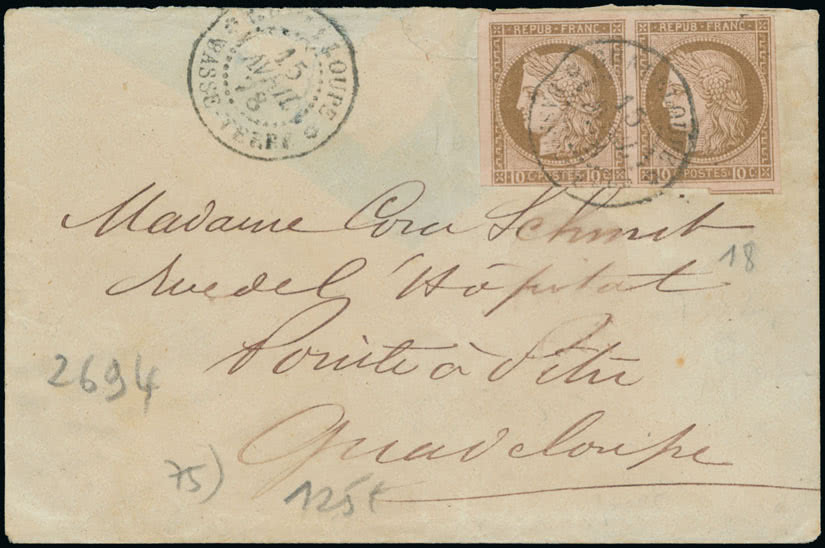 GUADELOUPE
BASSE-TERRE
15
AVRIL
78
REPUB FRANC
10 C POSTES 10 C
REPUB FRANC
10 C POSTES 10 C
15
Madame Cora Schmit
Rue de l'Hôpital
Pointe à Pitre
Guadeloupe
18
2694
75)
125 €